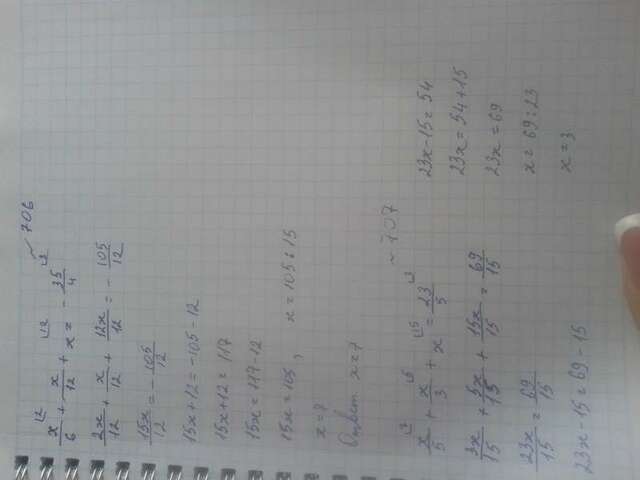 ~ 706
x/6 + x/12 + x = - 35/4
2x/12 + x/12 + 12x/12 = - 105/12
15x/12 = - 105/12
15x+12 = -105-12
15x+12 = 117
15x = 117-12
15x = 105, x = 105:15
x = 7
Ответ x = 7
~ 707
x/5 + x/3 + x = 23/5
3x/15 + 5x/15 + 15x/15 = 69/15
23x/15 = 69/15
23x-15 = 69-15
23x-15 = 54
23x = 54+15
23x = 69
x = 69:23
x = 3